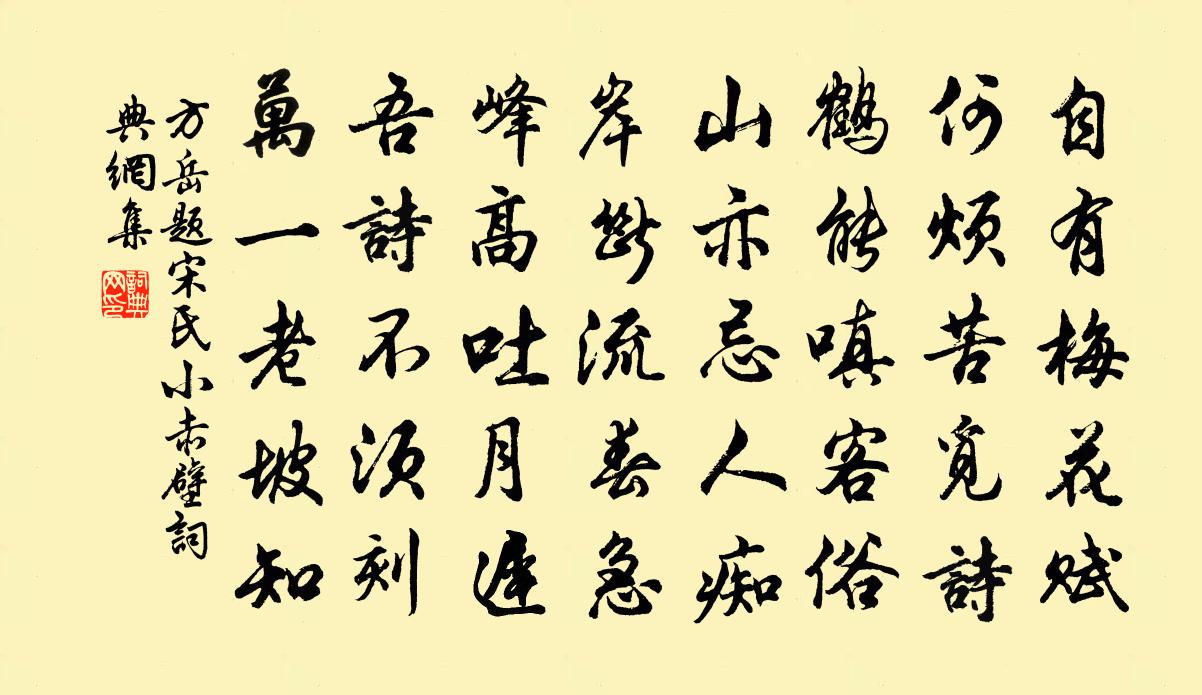 自有梅花賦
何煩苦覓詩
鶴能嗔客俗
山亦忌人痴
岸斷流春急
峰高吐月遲
吾詩不須刻
萬一老坡知
方岳題宋氏小赤壁詞
典網集
詞典
网印